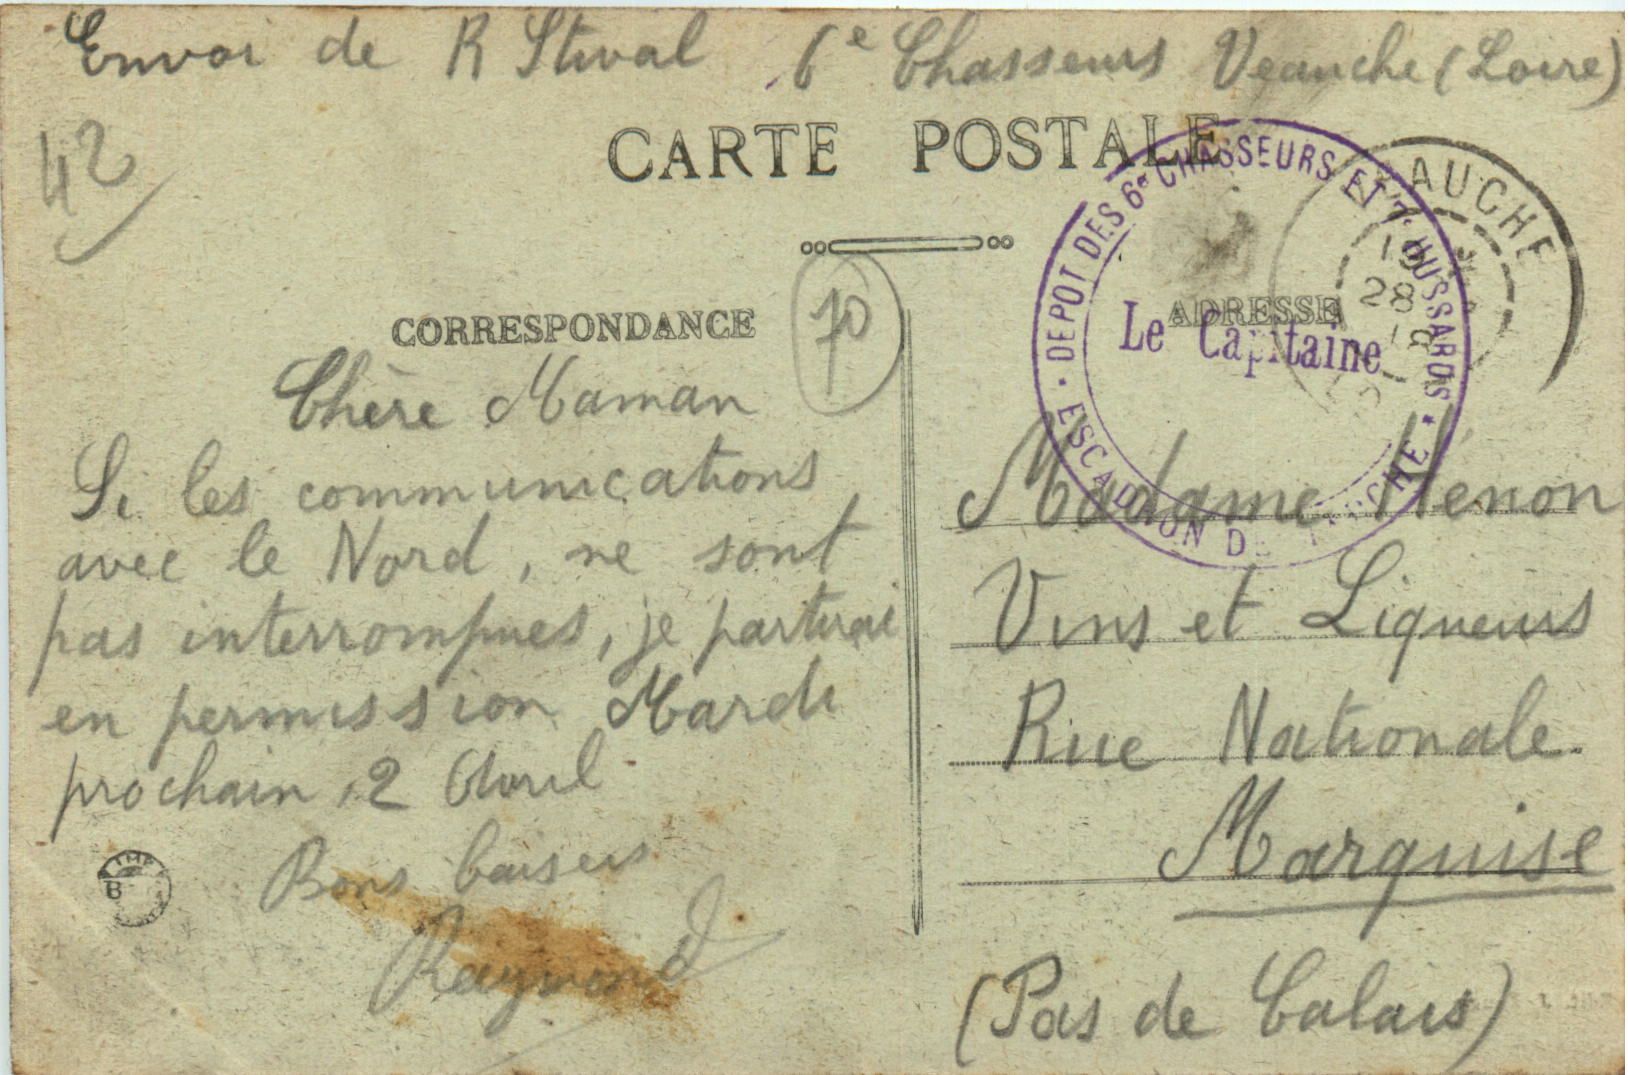 Envoi de R Stival 6e Chasseurs Veauche (Loire)
42
CARTE POSTALE
DEPOT DES 6e CHASSEURS ET 7e HUSSARDS
Le Capitaine
ESCADRON DE
AUCHE
19
28
18
CORRESPONDANCE
70
ADRESSE
Chère Maman
Si les communications
avec le Nord, ne sont
pas interrompues, je partirai
en permission Mardi
prochain, 2 Avril
Bons baisers
Raymond
IMP
B
Madame Hénon
Vins et Liqueurs
Rue Nationale
Marquise
(Pas de Calais)